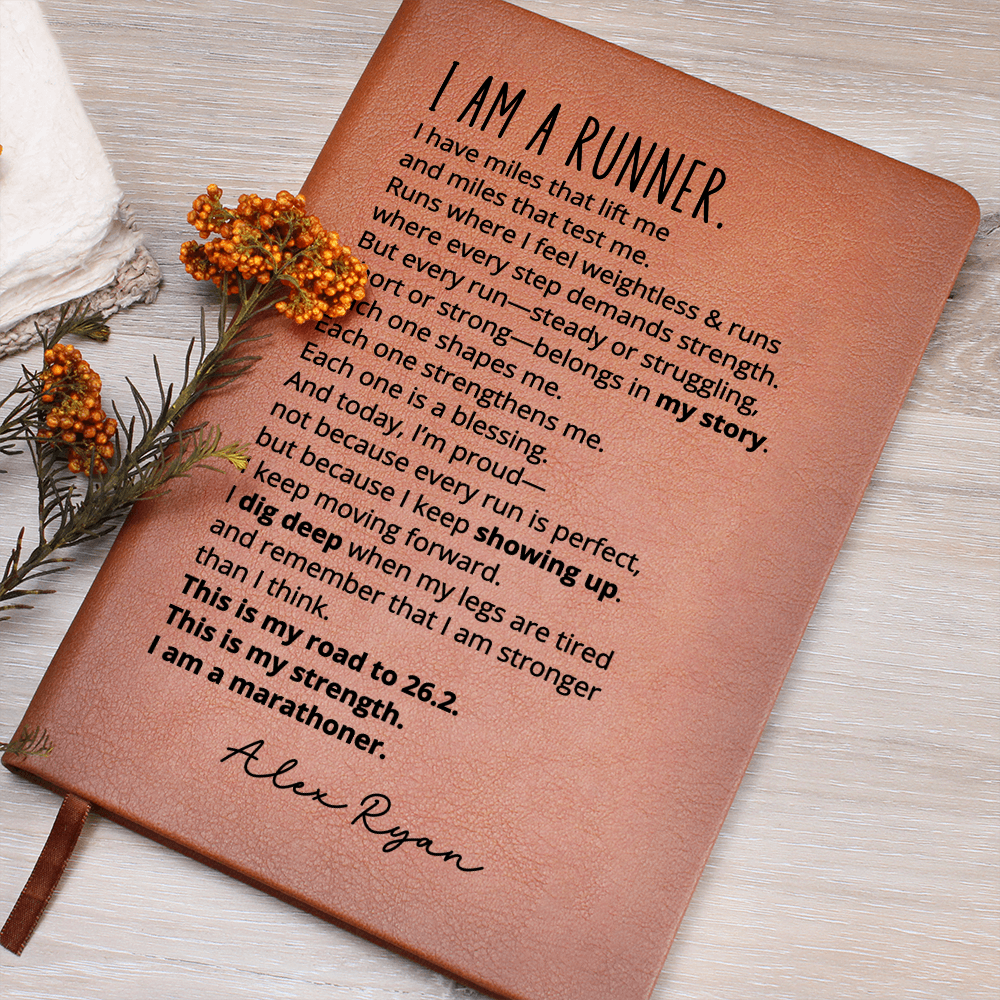 I AM A RUNNER.
I have miles that lift me
and miles that test me.
Runs where I feel weightless & runs
where every step demands strength.
But every run—steady or struggling,
or strong—belongs in my story.
one shapes me.
Each one strengthens me.
Each one is a blessing.
And today, I'm proud—
not because every run is perfect,
but because I keep showing up.
keep moving forward.
I dig deep when my legs are tired
and remember that I am stronger
than I think.
This is my road to 26.2.
This is my strength.
I am a marathoner.
Alex Ryan